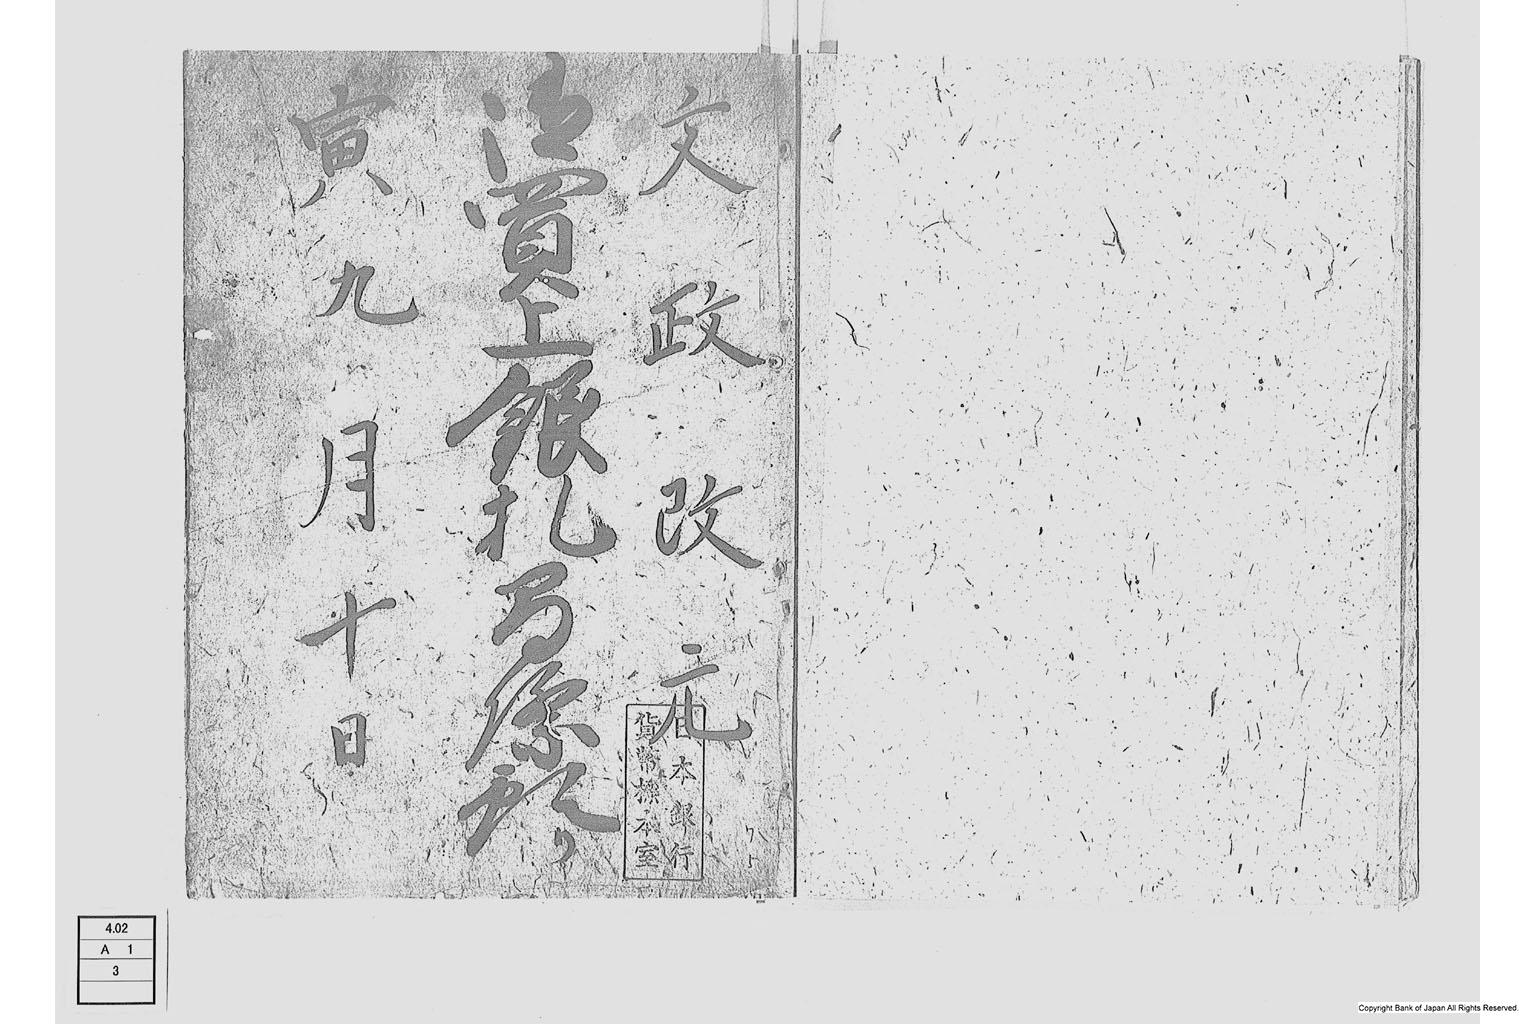 文政改元
買上銀札
寅九月十日
日本銀行
貨幣標本室
4.02
A 1
3
Copyright Bank of Japan All Rights Reserved.